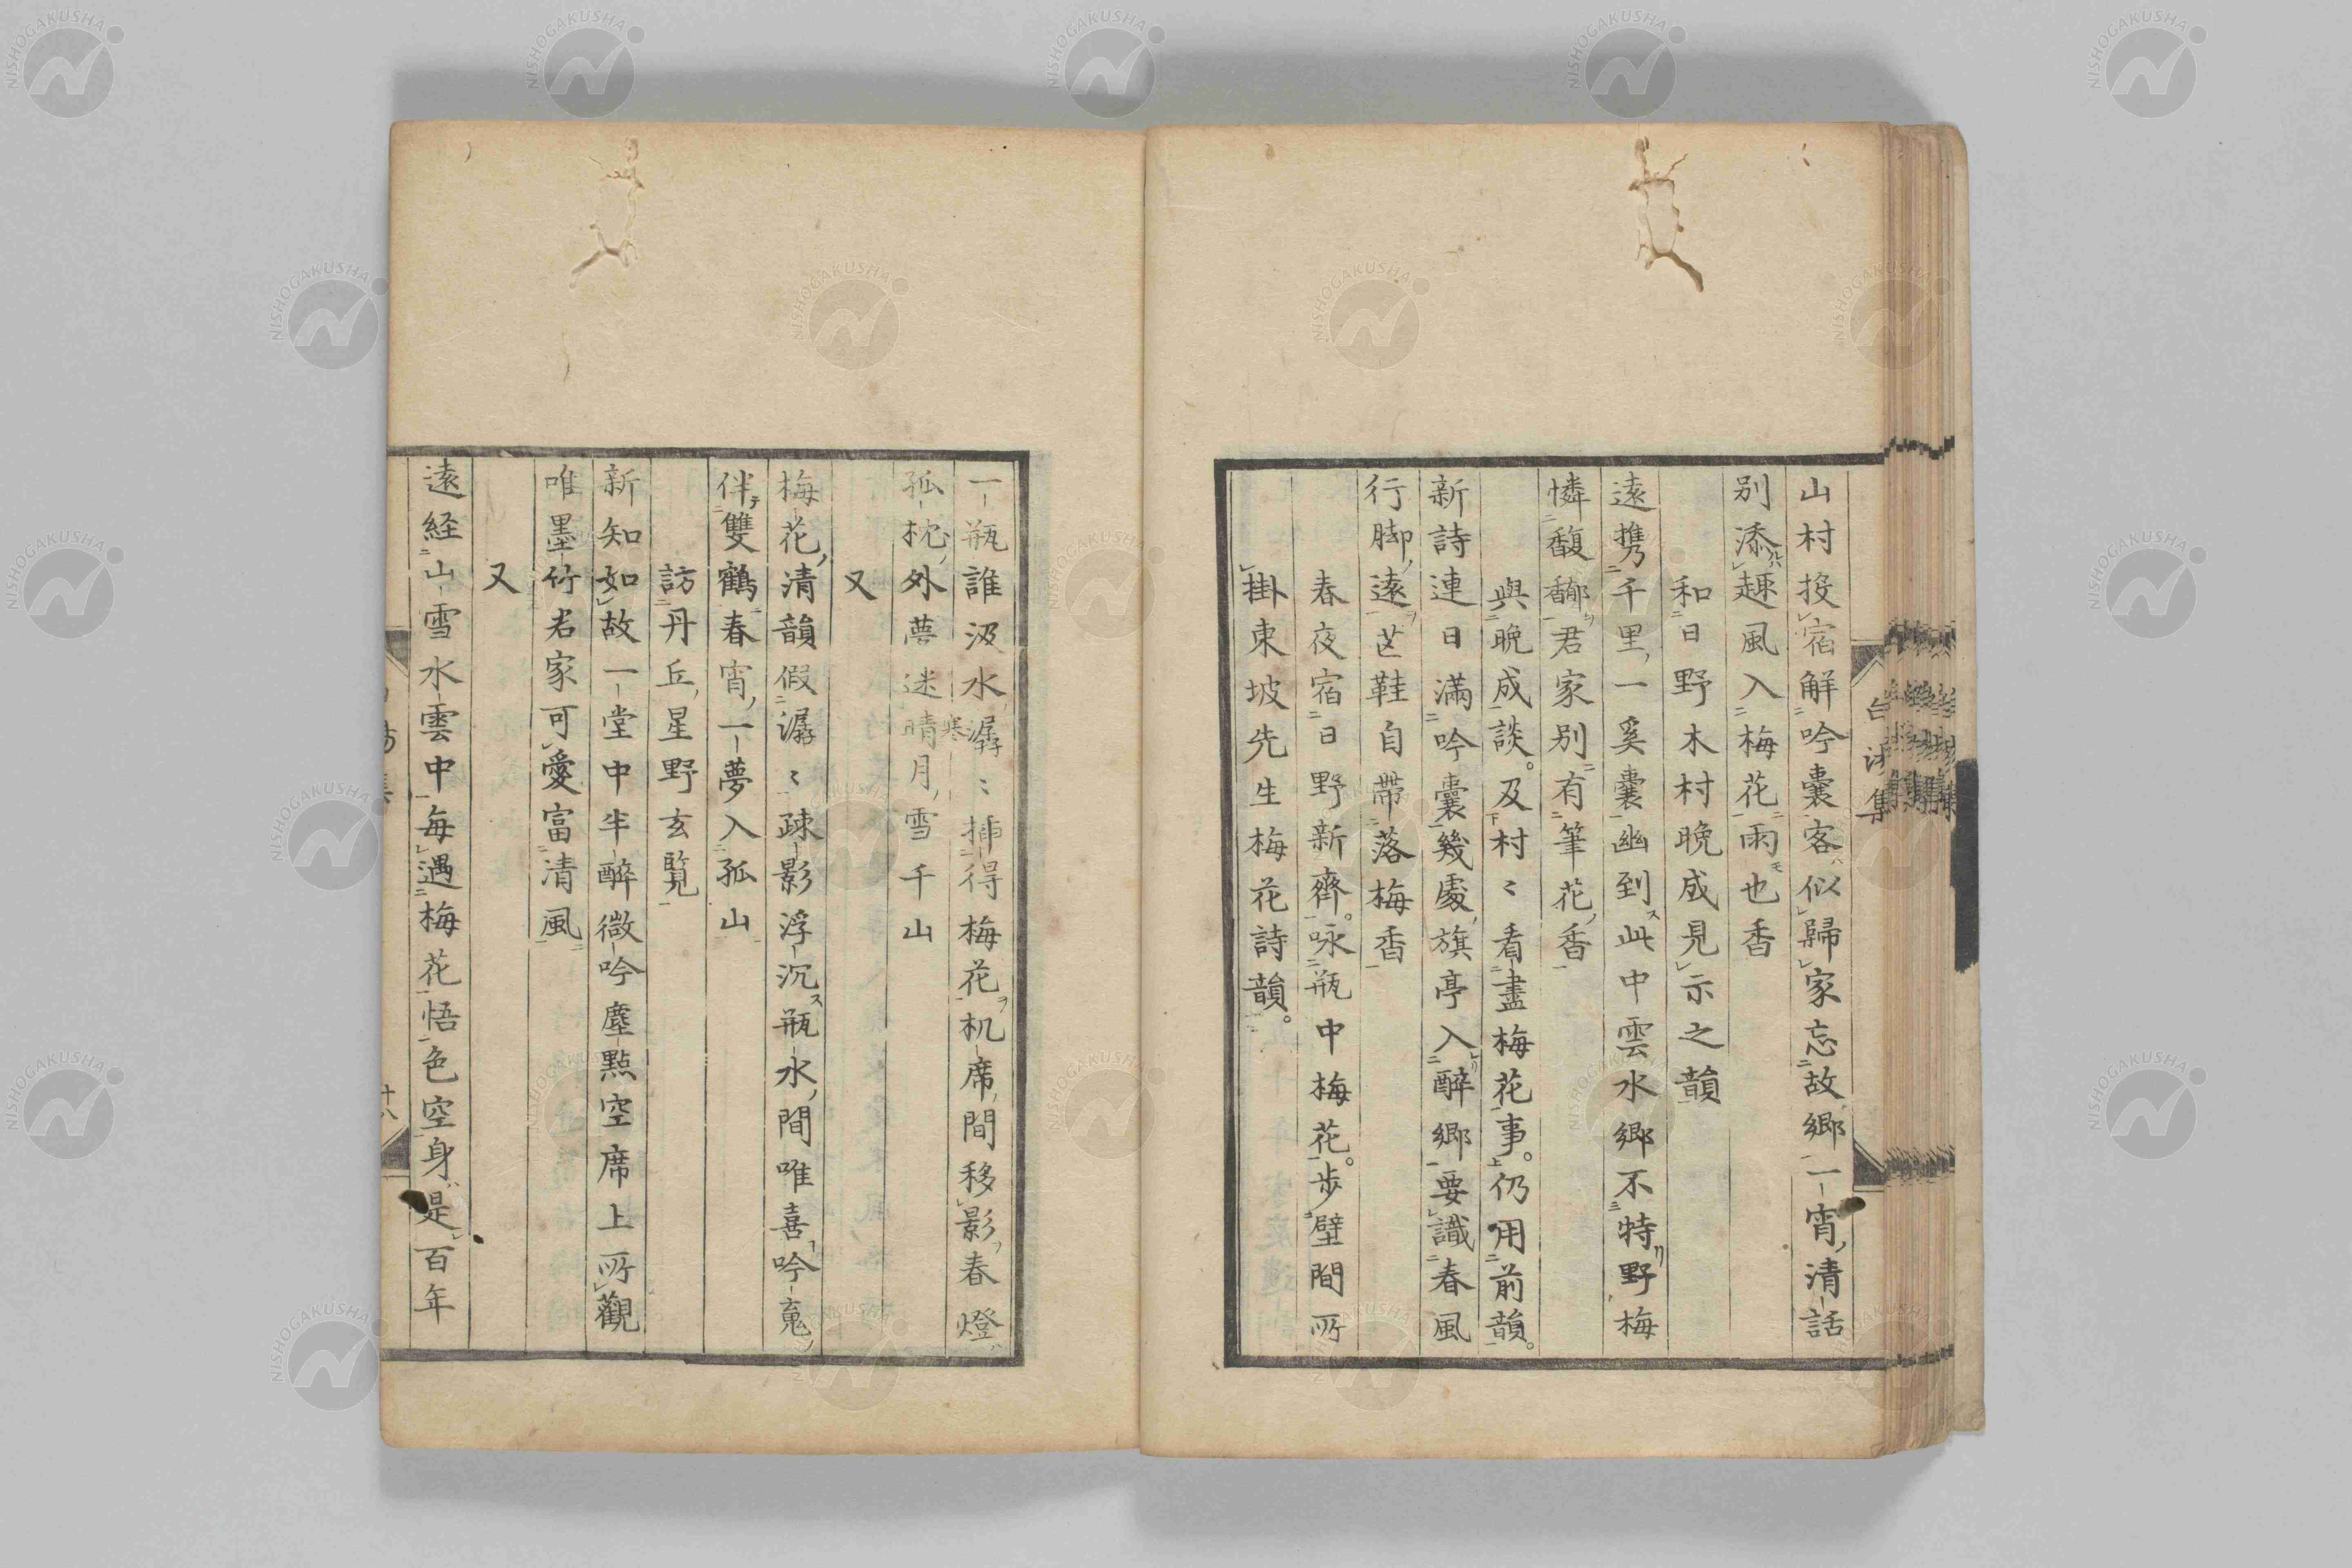 山村投宿解吟囊客似歸家忘故鄉一宵清話
別添趣風入梅花雨也香
和日野木村晩成見示之韻
遠携千里一奚囊幽到此中雲水鄉不特野梅
憐馥郁君家別有筆花香
與晩成談及村〻看盡梅花事。仍用前韻。
新詩連日滿吟囊幾處旗亭入醉鄉要識春風
行脚遠芒鞋自帶落梅香
春夜宿日野新齋。咏瓶中梅花。步壁間所
掛東坡先生梅花詩韻。
一瓶誰汲水潺〻揷得梅花机席間移影春燈
孤枕外夢迷晴月雪千山
寒
又
梅花清韻假潺〻疎影浮沉瓶水間唯喜吟蒐
伴雙鶴春宵一夢入孤山
訪丹丘星野玄覽
新知如故一堂中半醉微吟塵點空席上所觀
唯墨竹君家可愛富清風
又
遠経山雪水雲中每遇梅花悟色空身是百年
NISHOGAKUSHA